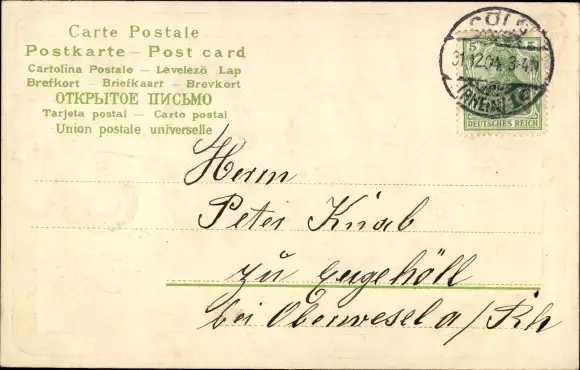 Carte Postale
Postkarte – Post card
Cartolina Postale – Levelező Lap
Brefkort – Briefkaart – Brevkort
ОТКРЫТОЕ ПИСЬМО
Tarjeta postal – Carto postal
Union postale universelle
CÖLN
31.12.04. 3-4N
(RHEIN)
5
DEUTSCHES REICH
Herrn
Peter Knab
zu Engehöll
bei Oberwesel a/Rh